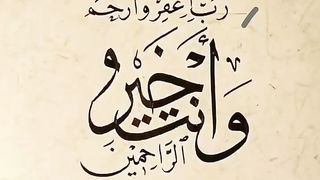 رَبِّ اغْفِرْ وَارْحَمْ
وَأَنتَ خَيْرُ
الرَّاحِمِينَ